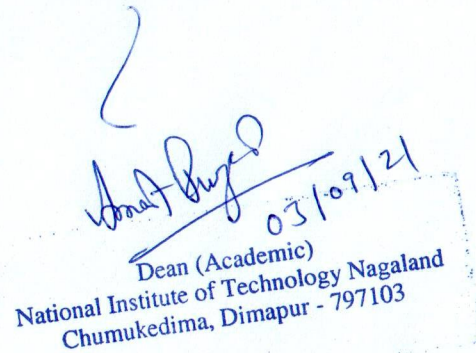 03/09/21
Dean (Academic)
National Institute of Technology Nagaland
Chumukedima, Dimapur - 797103